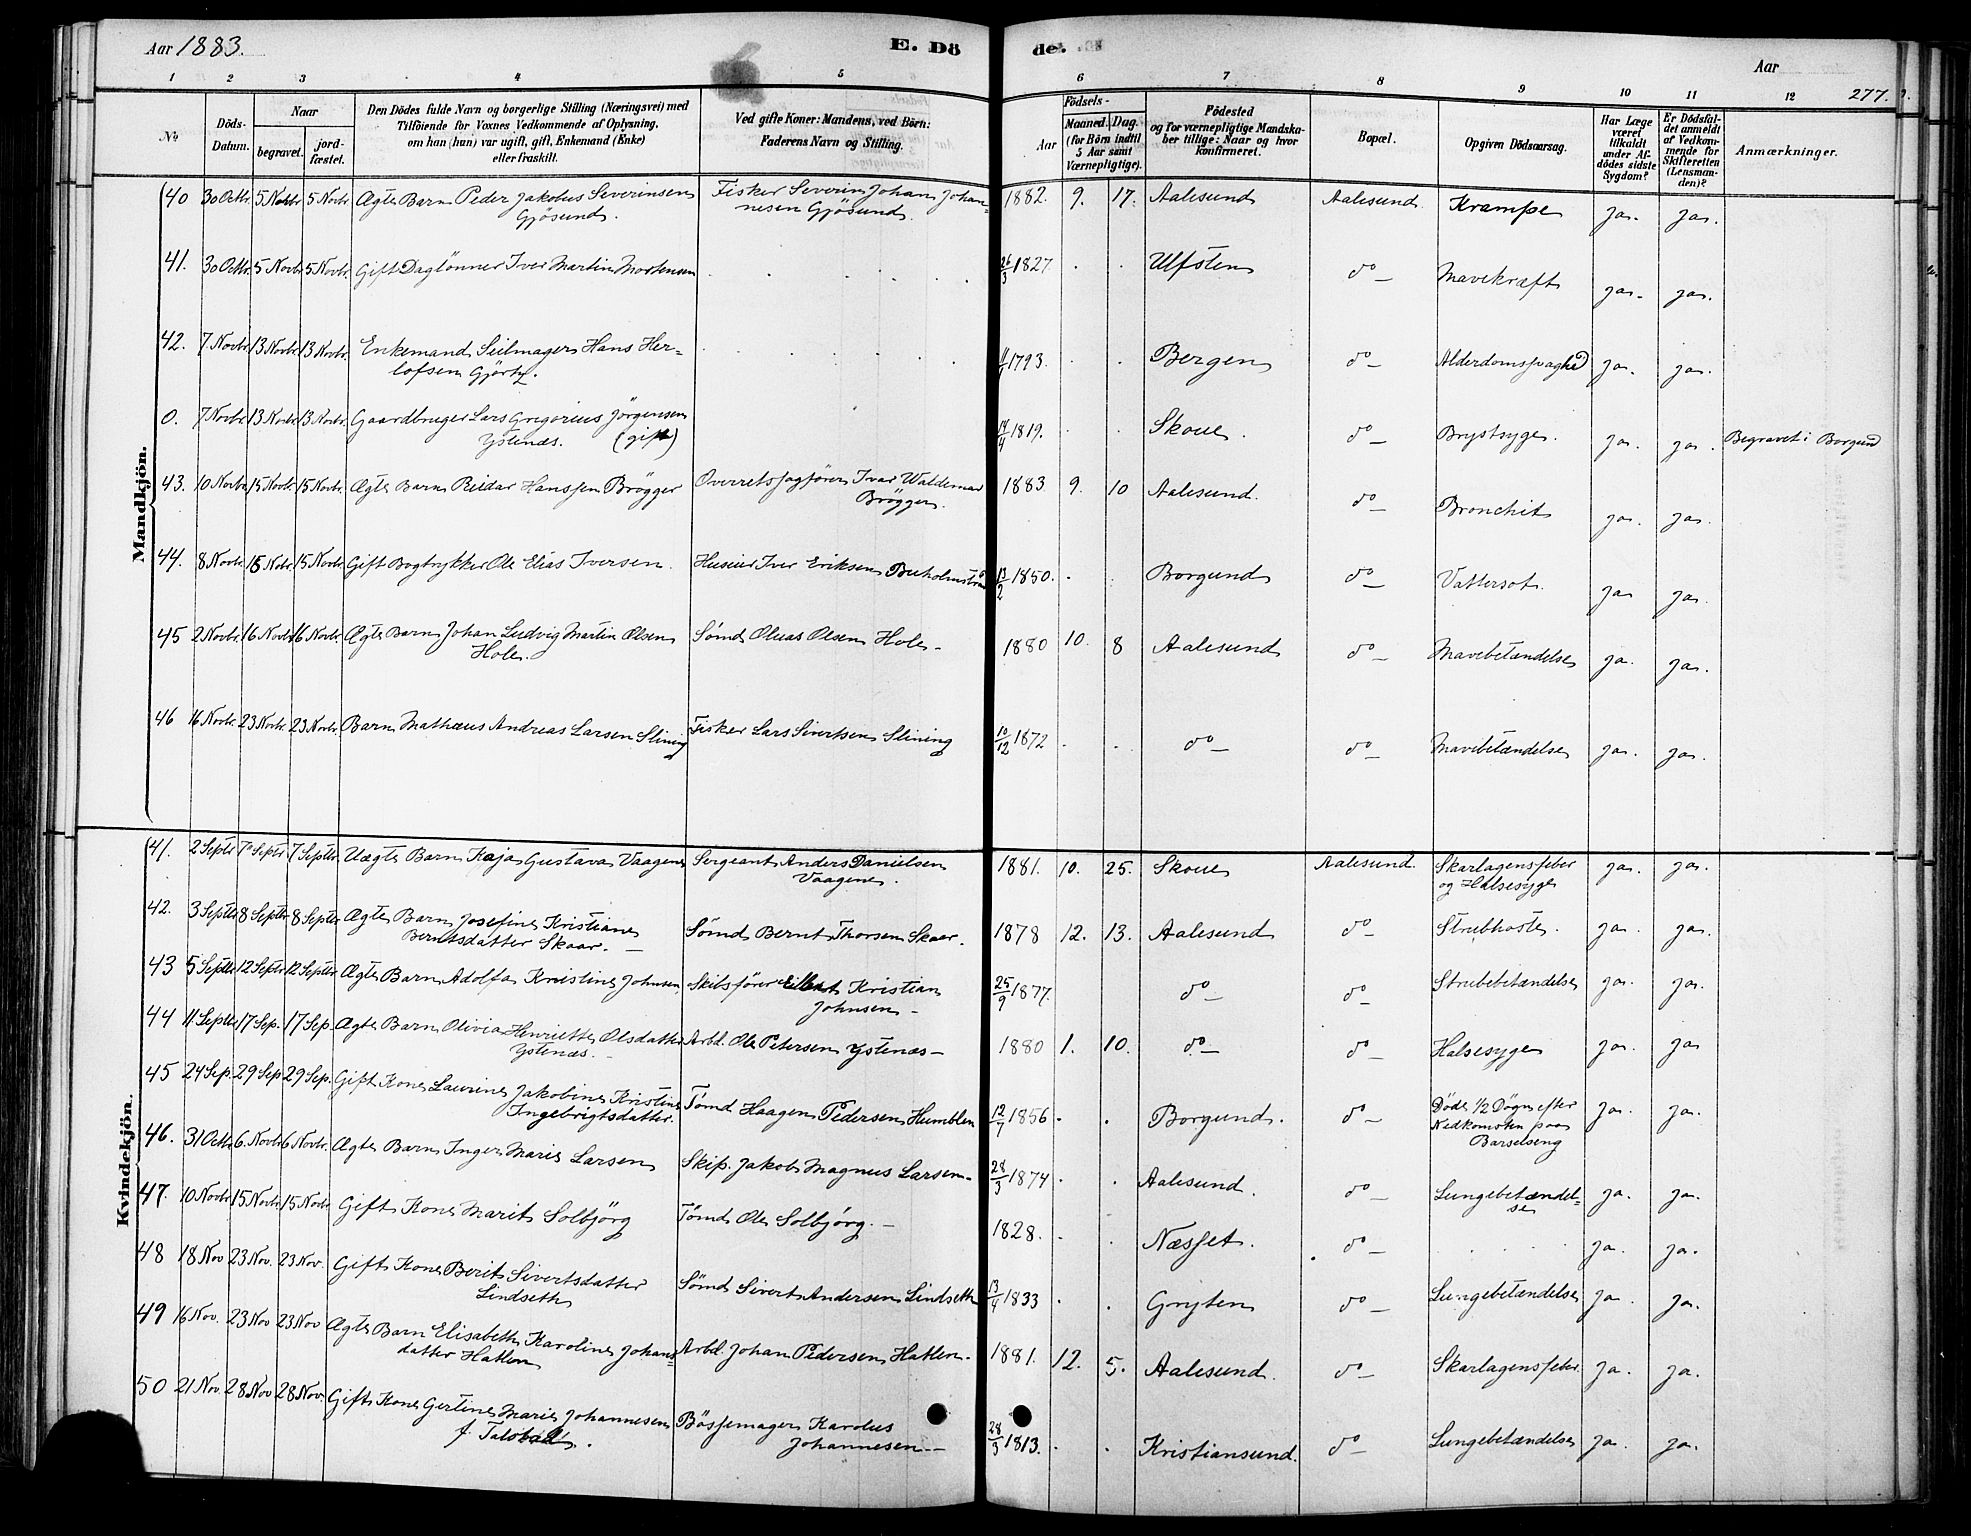 Aar 1883.
E. Dö
de.
Aar
277.
1 2 3 4 5 6 7 8 9 10 11 12
No
Döds-Datum.
Naar
begravet.
jord-fæstet.
Den Dödes fulde Navn og borgerlige Stilling (Næringsvei) med
Tilföiende for Voxnes Vedkommende af Oplysning,
om han (hun) var ugift, gift, Enkemand (Enke)
eller fraskilt.
Ved gifte Koner: Mandens, ved Börn:
Faderens Navn og Stilling.
Födsels-
Aar
Maaned. Dag.
(for Börn indtil
5 Aar samt
Værnepligtige).
Födested
og for værnepligtige Mandska-
ber tillige: Naar og hvor
konfirmeret.
Bopæl.
Opgiven Dödsaarsag.
Har Læge
været
tilkaldt
under Af-
dödes sidste
Sygdom?
Er Dödsfal-
det anmeldt
af Vedkom-
mende for
Skifteretten
(Lensman-
den)?
Anmærkninger.
Mandkjön.
40 30 Octbr. 5 Novbr 5 Novbr. Ægte Barn Peder Jakobus Severinsen Fisker Severin Johan Johan- 1882. 9. 17. Aalesund Aalesund. Krampe ja. ja.
Gjösund. nesen Gjösund.
41. 30 Octbr. 5 Novbr. 5 Novbr. Gift Daglönner Iver Martin Mortensen 26/3 1827. Ulfsten do Mavekræft ja. ja.
42. 7 Novbr. 13 Novbr. 13 Novbr. Enkemand Seilmager Hans Her- 1793. Bergen do Alderdomssvaghed ja. ja.
lofsen Gjörtz.
0. 7 Novbr. 13 Novbr. 13 Novbr. Gaardbruger Lars Gregorius Jörgensen 1819. Skoue. do Brystsyge. ja. ja. Begravet i Borgund
Ystenæs. (gift)
43. 10 Novbr. 15 Novbr. 15 Novbr. Ægte Barn Reidar Hanssen Brögger Overretssagförer Ivar Waldemar 1883 9. 10 Aalesund. do Bronchit ja. ja.
Brögger.
44. 8 Novbr. 15 Novbr. 15 Novbr. Gift Bogtrykker Ole Elias Iversen. Huseier Iver Eriksen 13/2 1850. Borgund do Vattersot. ja ja.
45 2 Novbr. 16 Novbr. 16 Novbr. Ægte Barn Johan Ludvig Martin Olsen Sömd Oluas Olsen Hole. 1880 10. 8 Aalesund do Mavebetændelse ja. ja.
Hole.
46 16 Novbr. 23 Novbr. 23 Novbr. Barn Mathæus Andreas Larsen Slining Fisker Lars Sivertsen Slining 10/12 1872 do do Mavebetændelse ja. ja.
Kvindekjön.
41. 2 Septbr 7 Septbr 7 Septbr. Uægte Barn Kaja Gustava Vaagenes Sergeant Anders Danielsen 1881. 10. 25. Skoue Aalesund. Skarlagensfeber ja. ja.
Vaagenes. og Halsesyge
42. 3 Septbr 8 Septbr 8 Septbr Ægte Barn Josefine Kristiane Sömd Bernt Thorsen Skaar. 1878 12. 13. Aalesund do Strubhoste. ja. ja.
Berntsdatter Skaar.
43 5 Septbr 12 Septbr 12 Septbr Ægte Barn Adolfa Kristine Johnsen. Skibsförer Kristian 25/9 1877. do do Strubebetændelse ja. ja.
Johnsen
44 11 Septbr 17 Sep. 17 Sep. Ægte Barn Olivia Henriette Olsdatter Arbd. Ole Petersen Ystenæs 1880 1. 10. do do Halsesyge ja. ja
Ystenæs.
45 24 Sep. 29 Sep 29 Sep. Gift Kone Laurine Jakobine Kristine Tömd Haagen Pedersen Humblen 12/7 1856 Borgund. do Döde 1/2 Dögn efter ja. ja.
Ingebrigtsdatter. Nedkomsten paa
Barselseng
46. 31 Octbr 6. Novbr 6 Novbr. Ægte Barn Inger Marie Larsen Skip. Jakob Magnus Larsen. 28/3 1874 Aalesund. do Lungebetændel- ja. ja.
se
47. 10 Novbr 15 Novbr. 15 Novbr. Gift Kone Marit Solbjörg Tömd Ole Solbjörg. 1828. Næsset. do ja. ja.
48 18 Nov 23 Nov. 23 Nov. Gift Kone Berit Sivertsdatter Sömd Sivert Andersen Lindseth 13/4 1833 Gryten do Lungebetændelse ja. ja.
Lindseth
49 16 Nov. 23 Nov 23 Nov Ægte Barn Elisabeth Karoline Johans- Arbd. Johan Pedersen Hatlen. 1881. 12. 5. Aalesund. do Skarlagensfeber. ja. ja.
datter Hatlen
50 21 Nov. 28 Nov 28 Nov. Gift Kone Gertine Marie Johannesen Bössemager Karolus 28/3 1813. Kristiansund. do Lungebetændelse ja. ja.
Johannesen